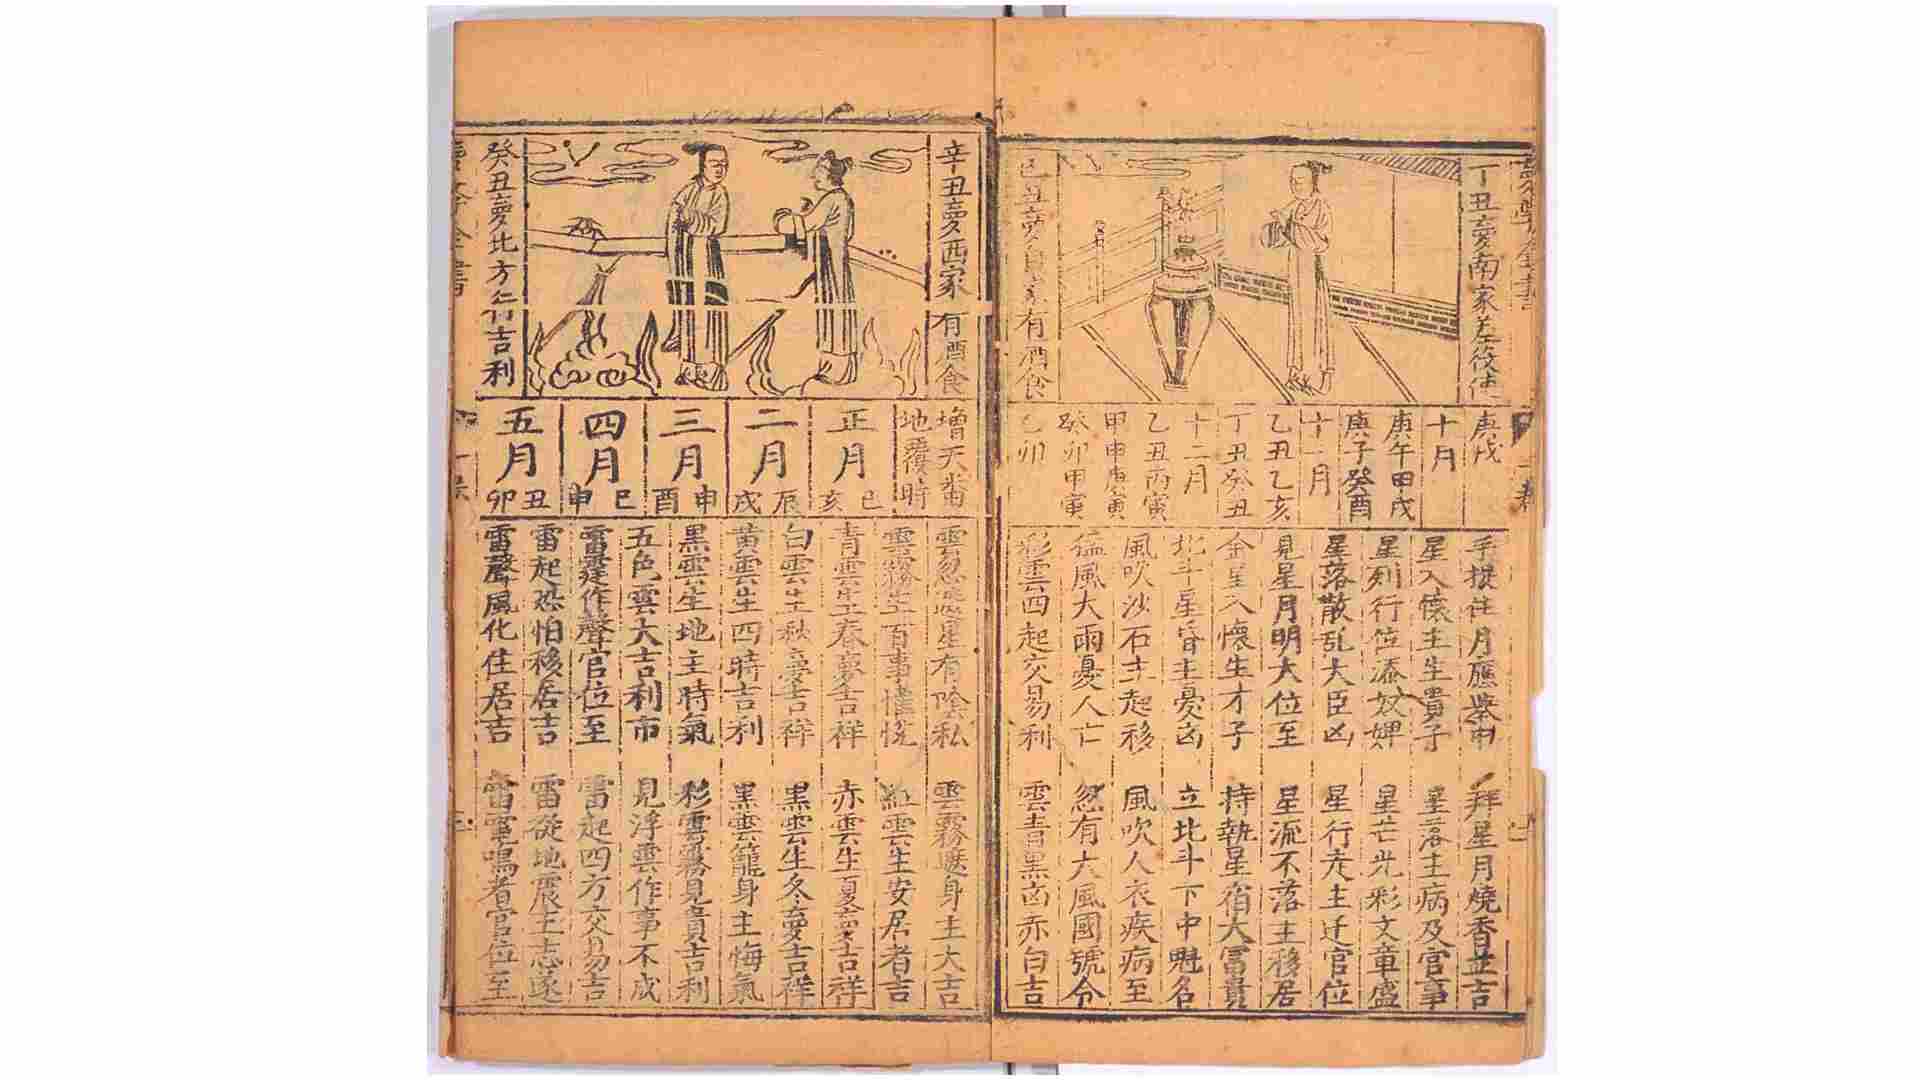 丁丑夢南家
有酒食
庚戌
十月
庚午甲戌
庚子癸酉
十一月
乙丑乙亥
丁丑癸丑
十二月
乙丑丙寅
甲申庚寅
癸卯甲寅
乙卯
手捉住月應舉中
拜星月燒香並吉
星入懷主生貴子
星落主病及官事
星列行位添奴婢
星芒光彩文章盛
星落散乱大臣凶
星行走主迁官位
見星月明大位至
星流不落主移居
金星入懷生才子
持執星宿大富貴
北斗星昏主憂凶
立北斗下中魁名
風吹沙石主起移
風吹人衣疾病至
猛風大雨憂人亡
忽有大風國號令
彩雲四起交易利
雲青黑凶赤白吉
辛丑夢西家有酒食
癸丑夢北方 吉利
增天番
地覆時
正月
巳亥
二月
辰戌
三月
申酉
四月
巳申
五月
丑卯
雲忽遮星有陰私
雲霧遮身主大吉
雲霧生百事懽悅
紅雲生安居者吉
青雲生春夢吉祥
赤雲生夏夢吉祥
白雲生秋夢吉祥
黑雲生冬夢吉祥
黃雲生四時吉利
黑雲籠身主悔氣
黑雲生地主時氣
彩雲霧見貴吉利
五色雲大吉利市
見浮雲作事不成
雷霆作聲官位至
雷起四方交易吉
雷起恐怕移居吉
雷從地震主志遂
雷聲風化住居吉
雷電鳴者官位至